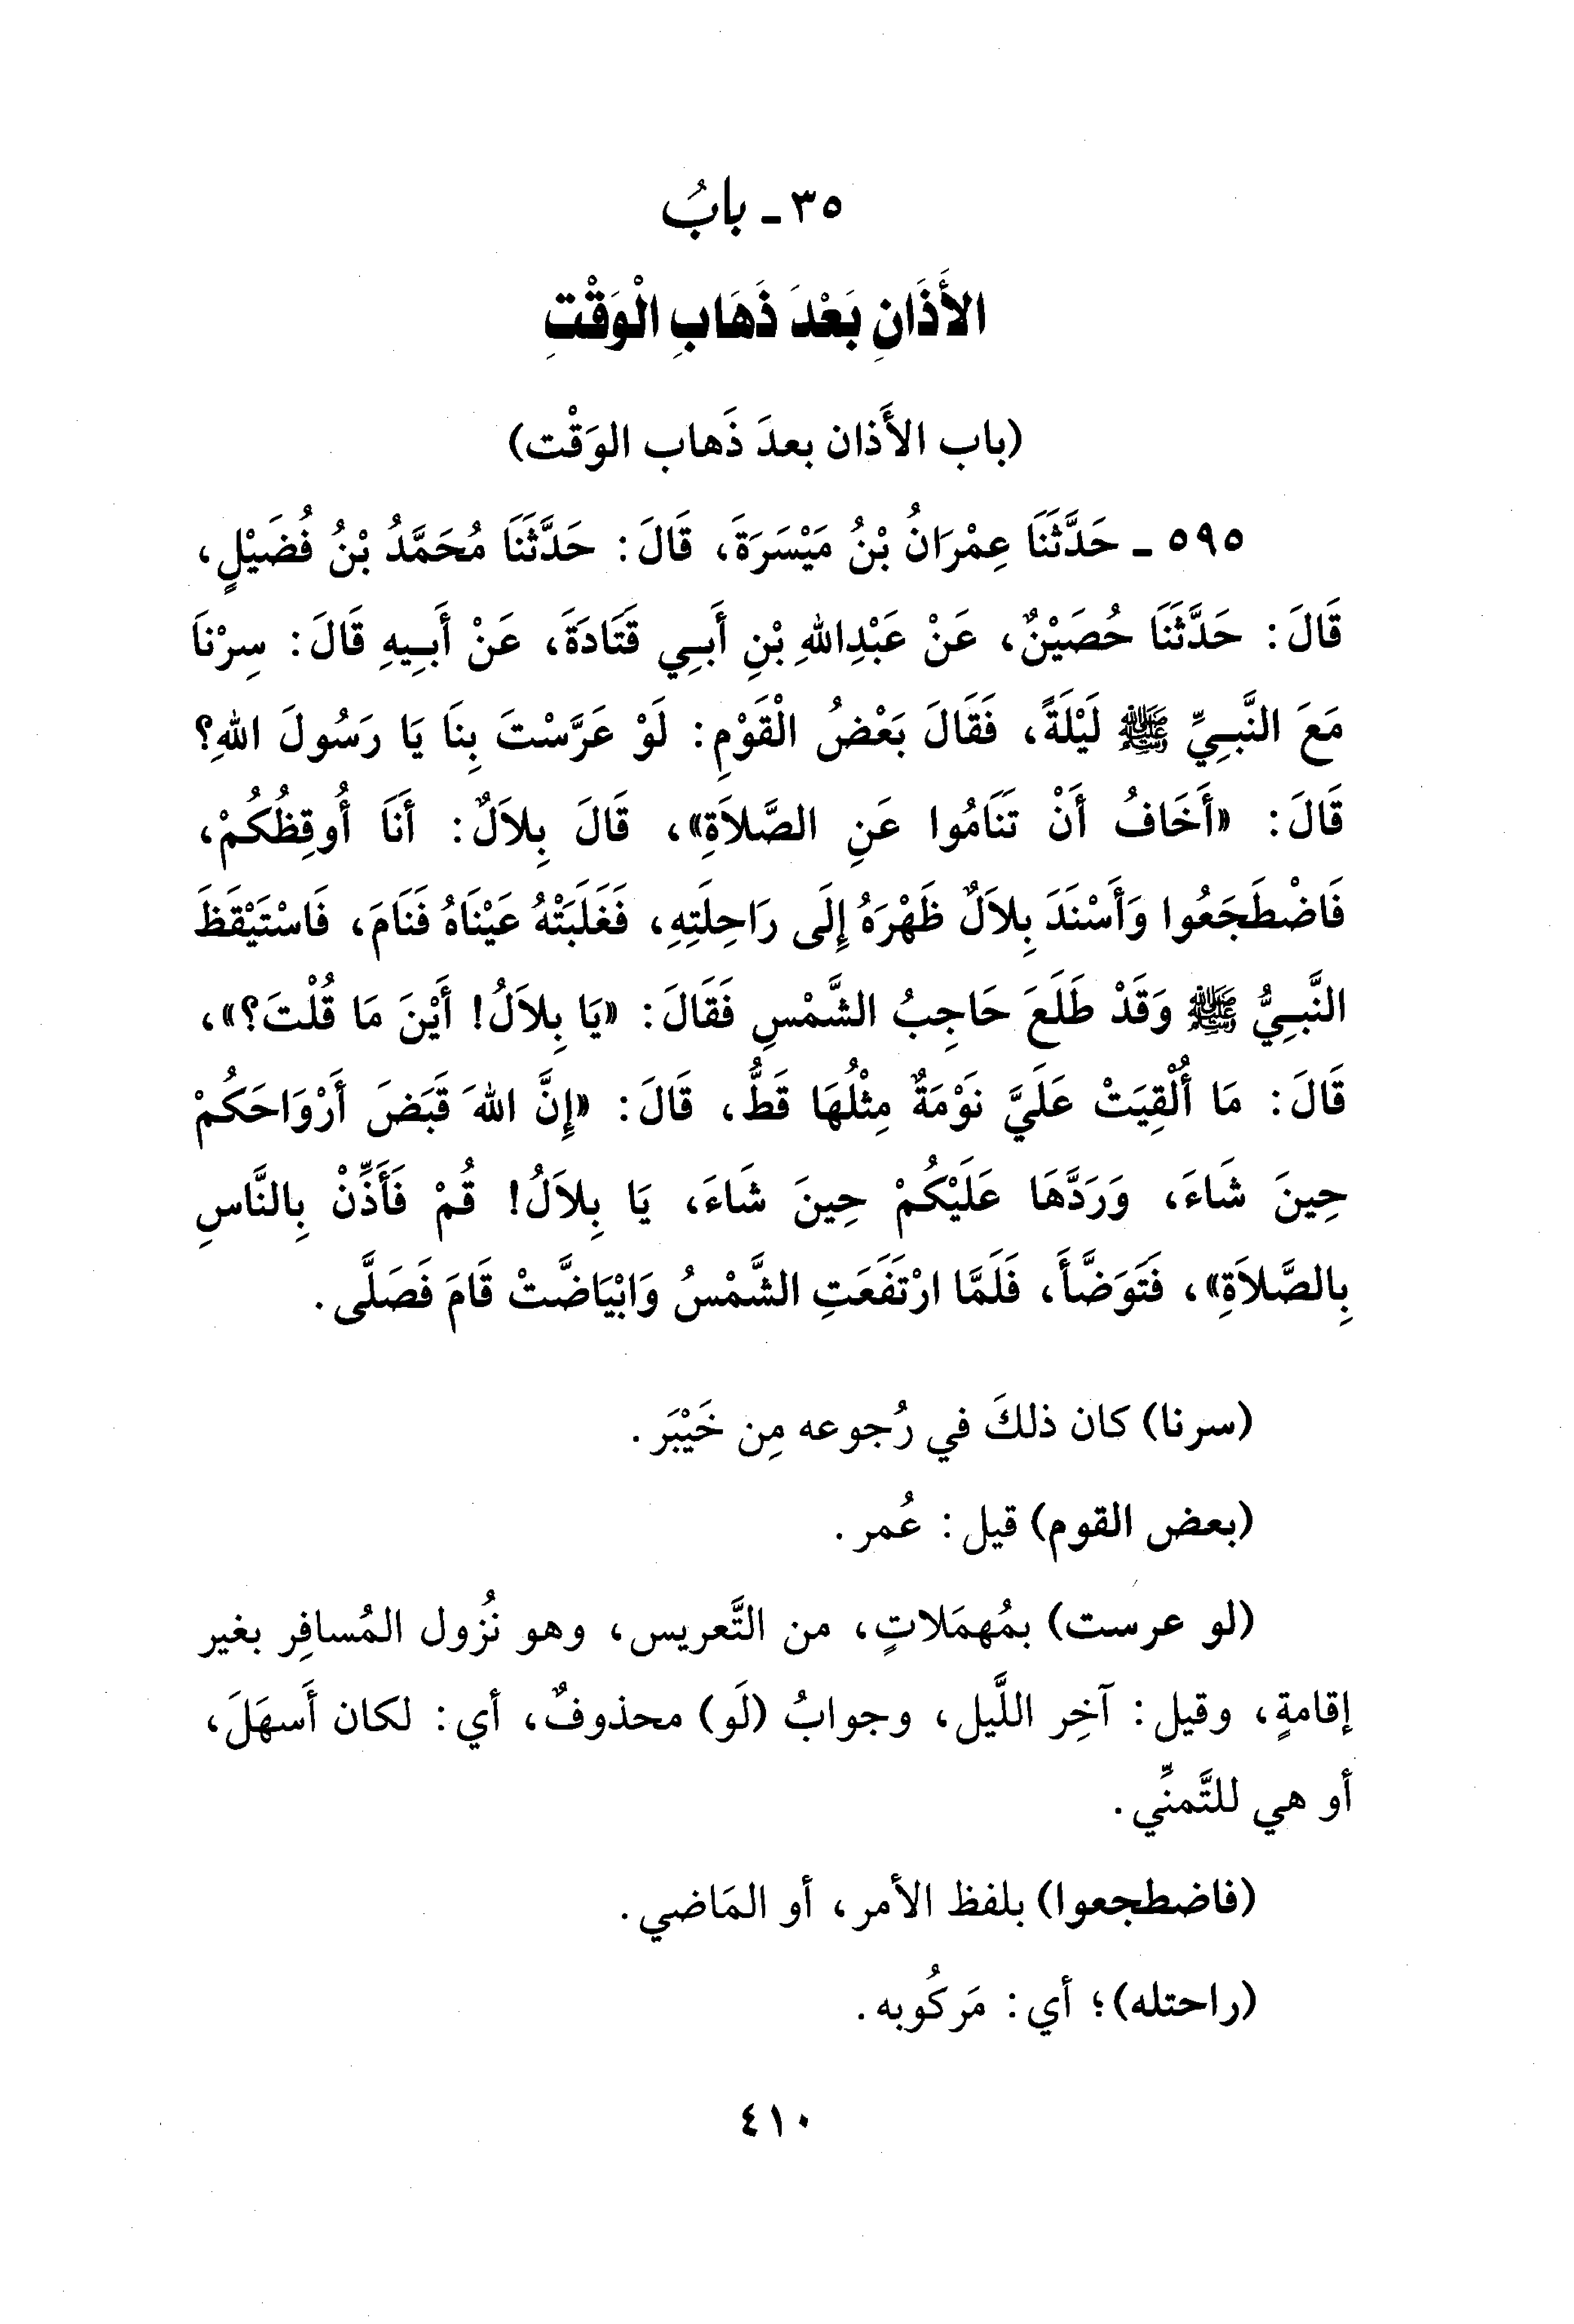 ٣٥ - بابُ
الأَذَانِ بَعْدَ ذَهَابِ الْوَقْتِ
(باب الأَذان بعدَ ذَهاب الوَقْت)
٥٩٥ - حَدَّثَنَا عِمْرَانُ بْنُ مَيْسَرَةَ، قَالَ: حَدَّثَنَا مُحَمَّدُ بْنُ فُضَيْلٍ،
قَالَ: حَدَّثَنَا حُصَيْنٌ، عَنْ عَبْدِاللهِ بْنِ أَبِي قَتَادَةَ، عَنْ أَبِيهِ قَالَ: سِرْنَا
مَعَ النَّبِيِّ ﷺ لَيْلَةً، فَقَالَ بَعْضُ الْقَوْمِ: لَوْ عَرَّسْتَ بِنَا يَا رَسُولَ اللهِ؟
قَالَ: «أَخَافُ أَنْ تَنَامُوا عَنِ الصَّلاَةِ»، قَالَ بِلاَلٌ: أَنَا أُوقِظُكُمْ،
فَاضْطَجَعُوا وَأَسْنَدَ بِلاَلٌ ظَهْرَهُ إِلَى رَاحِلَتِهِ، فَغَلَبَتْهُ عَيْنَاهُ فَنَامَ، فَاسْتَيْقَظَ
النَّبِيُّ ﷺ وَقَدْ طَلَعَ حَاجِبُ الشَّمْسِ فَقَالَ: «يَا بِلاَلُ! أَيْنَ مَا قُلْتَ؟»،
قَالَ: مَا أُلْقِيَتْ عَلَيَّ نَوْمَةٌ مِثْلُهَا قَطُّ، قَالَ: «إِنَّ اللهَ قَبَضَ أَرْوَاحَكُمْ
حِينَ شَاءَ، وَرَدَّهَا عَلَيْكُمْ حِينَ شَاءَ، يَا بِلاَلُ! قُمْ فَأَذِّنْ بِالنَّاسِ
بِالصَّلاَةِ»، فَتَوَضَّأَ، فَلَمَّا ارْتَفَعَتِ الشَّمْسُ وَابْيَاضَّتْ قَامَ فَصَلَّى.
(سرنا) كان ذلكَ في رُجوعه مِن خَيْبَر.
(بعض القوم) قيل: عُمر.
(لو عرست) بمُهمَلاتٍ، من التَّعريس، وهو نُزول المُسافِر بغير
إقامةٍ، وقيل: آخِر اللَّيل، وجوابُ (لَو) محذوفٌ، أي: لكان أَسهَلَ،
أو هي للتَّمنِّي.
(فاضطجعوا) بلفظ الأمر، أو المَاضي.
(راحتله)؛ أي: مَركُوبه.
٤١٠